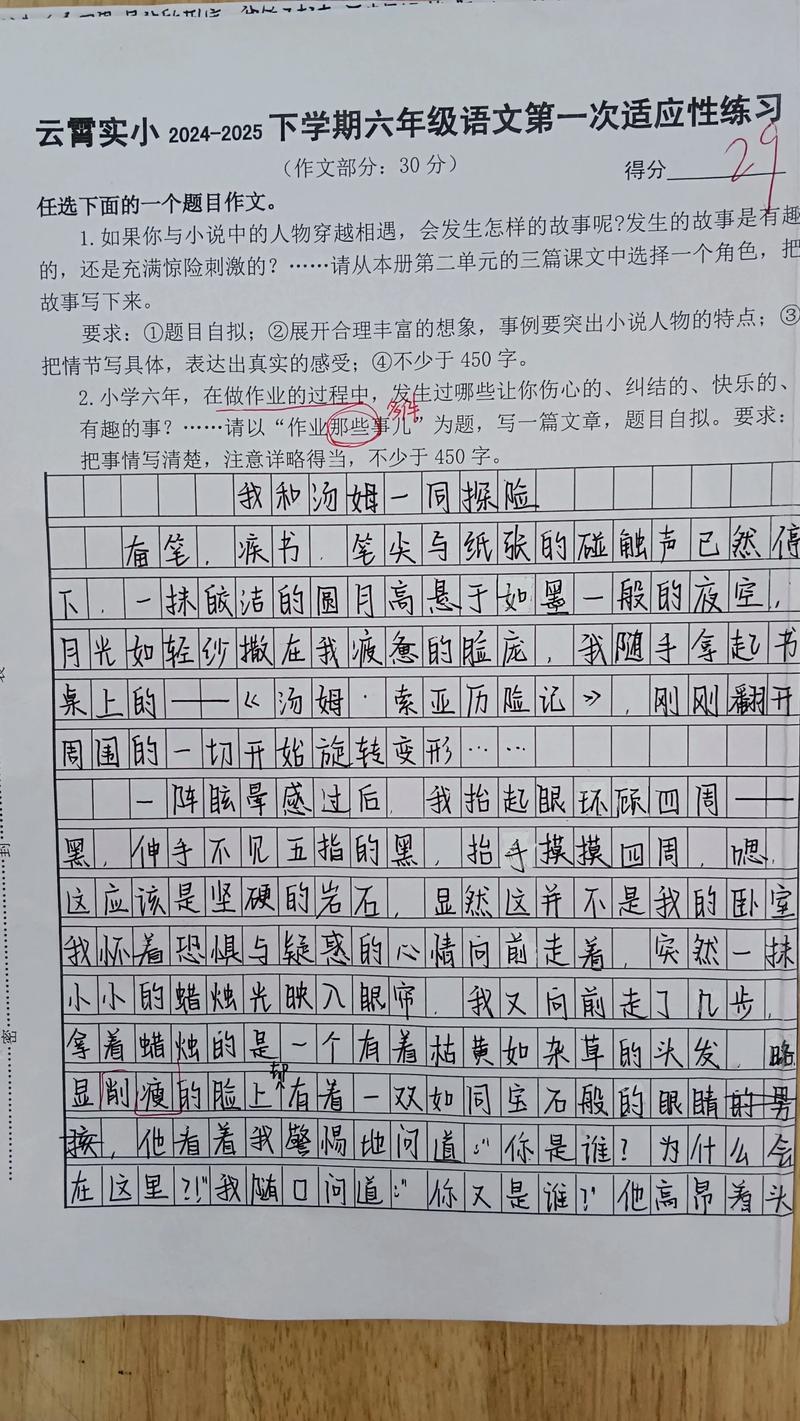 云霄实小 2024-2025 下学期六年级语文第一次适应性练习
（作文部分：30 分）
得分 29
任选下面的一个题目作文。
1.如果你与小说中的人物穿越相遇，会发生怎样的故事呢?发生的故事是有趣
的，还是充满惊险刺激的？……请从本册第二单元的三篇课文中选择一个角色，把
故事写下来。
要求：①题目自拟；②展开合理丰富的想象，事例要突出小说人物的特点；③
把情节写具体，表达出真实的感受；④不少于 450 字。
2.小学六年，在做作业的过程中，发生过哪些让你伤心的、纠结的、快乐的、
多件
有趣的事？……请以“作业那些事儿”为题，写一篇文章，题目自拟。要求：
把事情写清楚，注意详略得当，不少于 450 字。
我和汤姆一同探险
奋笔，疾书，笔尖与纸张的碰触声已然停
下，一抹皎洁的圆月高悬于如墨一般的夜空，
月光如轻纱撒在我疲惫的脸庞，我随手拿起书
桌上的——《汤姆·索亚历险记》，刚刚翻开
周围的一切开始旋转变形……
一阵眩晕感过后，我抬起眼环顾四周——
黑，伸手不见五指的黑，抬手摸摸四周，嗯，
这应该是坚硬的岩石，显然这并不是我的卧室
我怀着恐惧与疑惑的心情向前走着，突然一抹
小小的蜡烛光映入眼帘，我又向前走了几步，
拿着蜡烛的是一个有着枯黄如杂草的头发，略
显削瘦的脸上却有着一双如同宝石般的眼睛的男
孩，他看着我警惕地问道：“你是谁？为什么会
在这里?!”我随口问道：“你又是谁?”他高昂着头
密
封